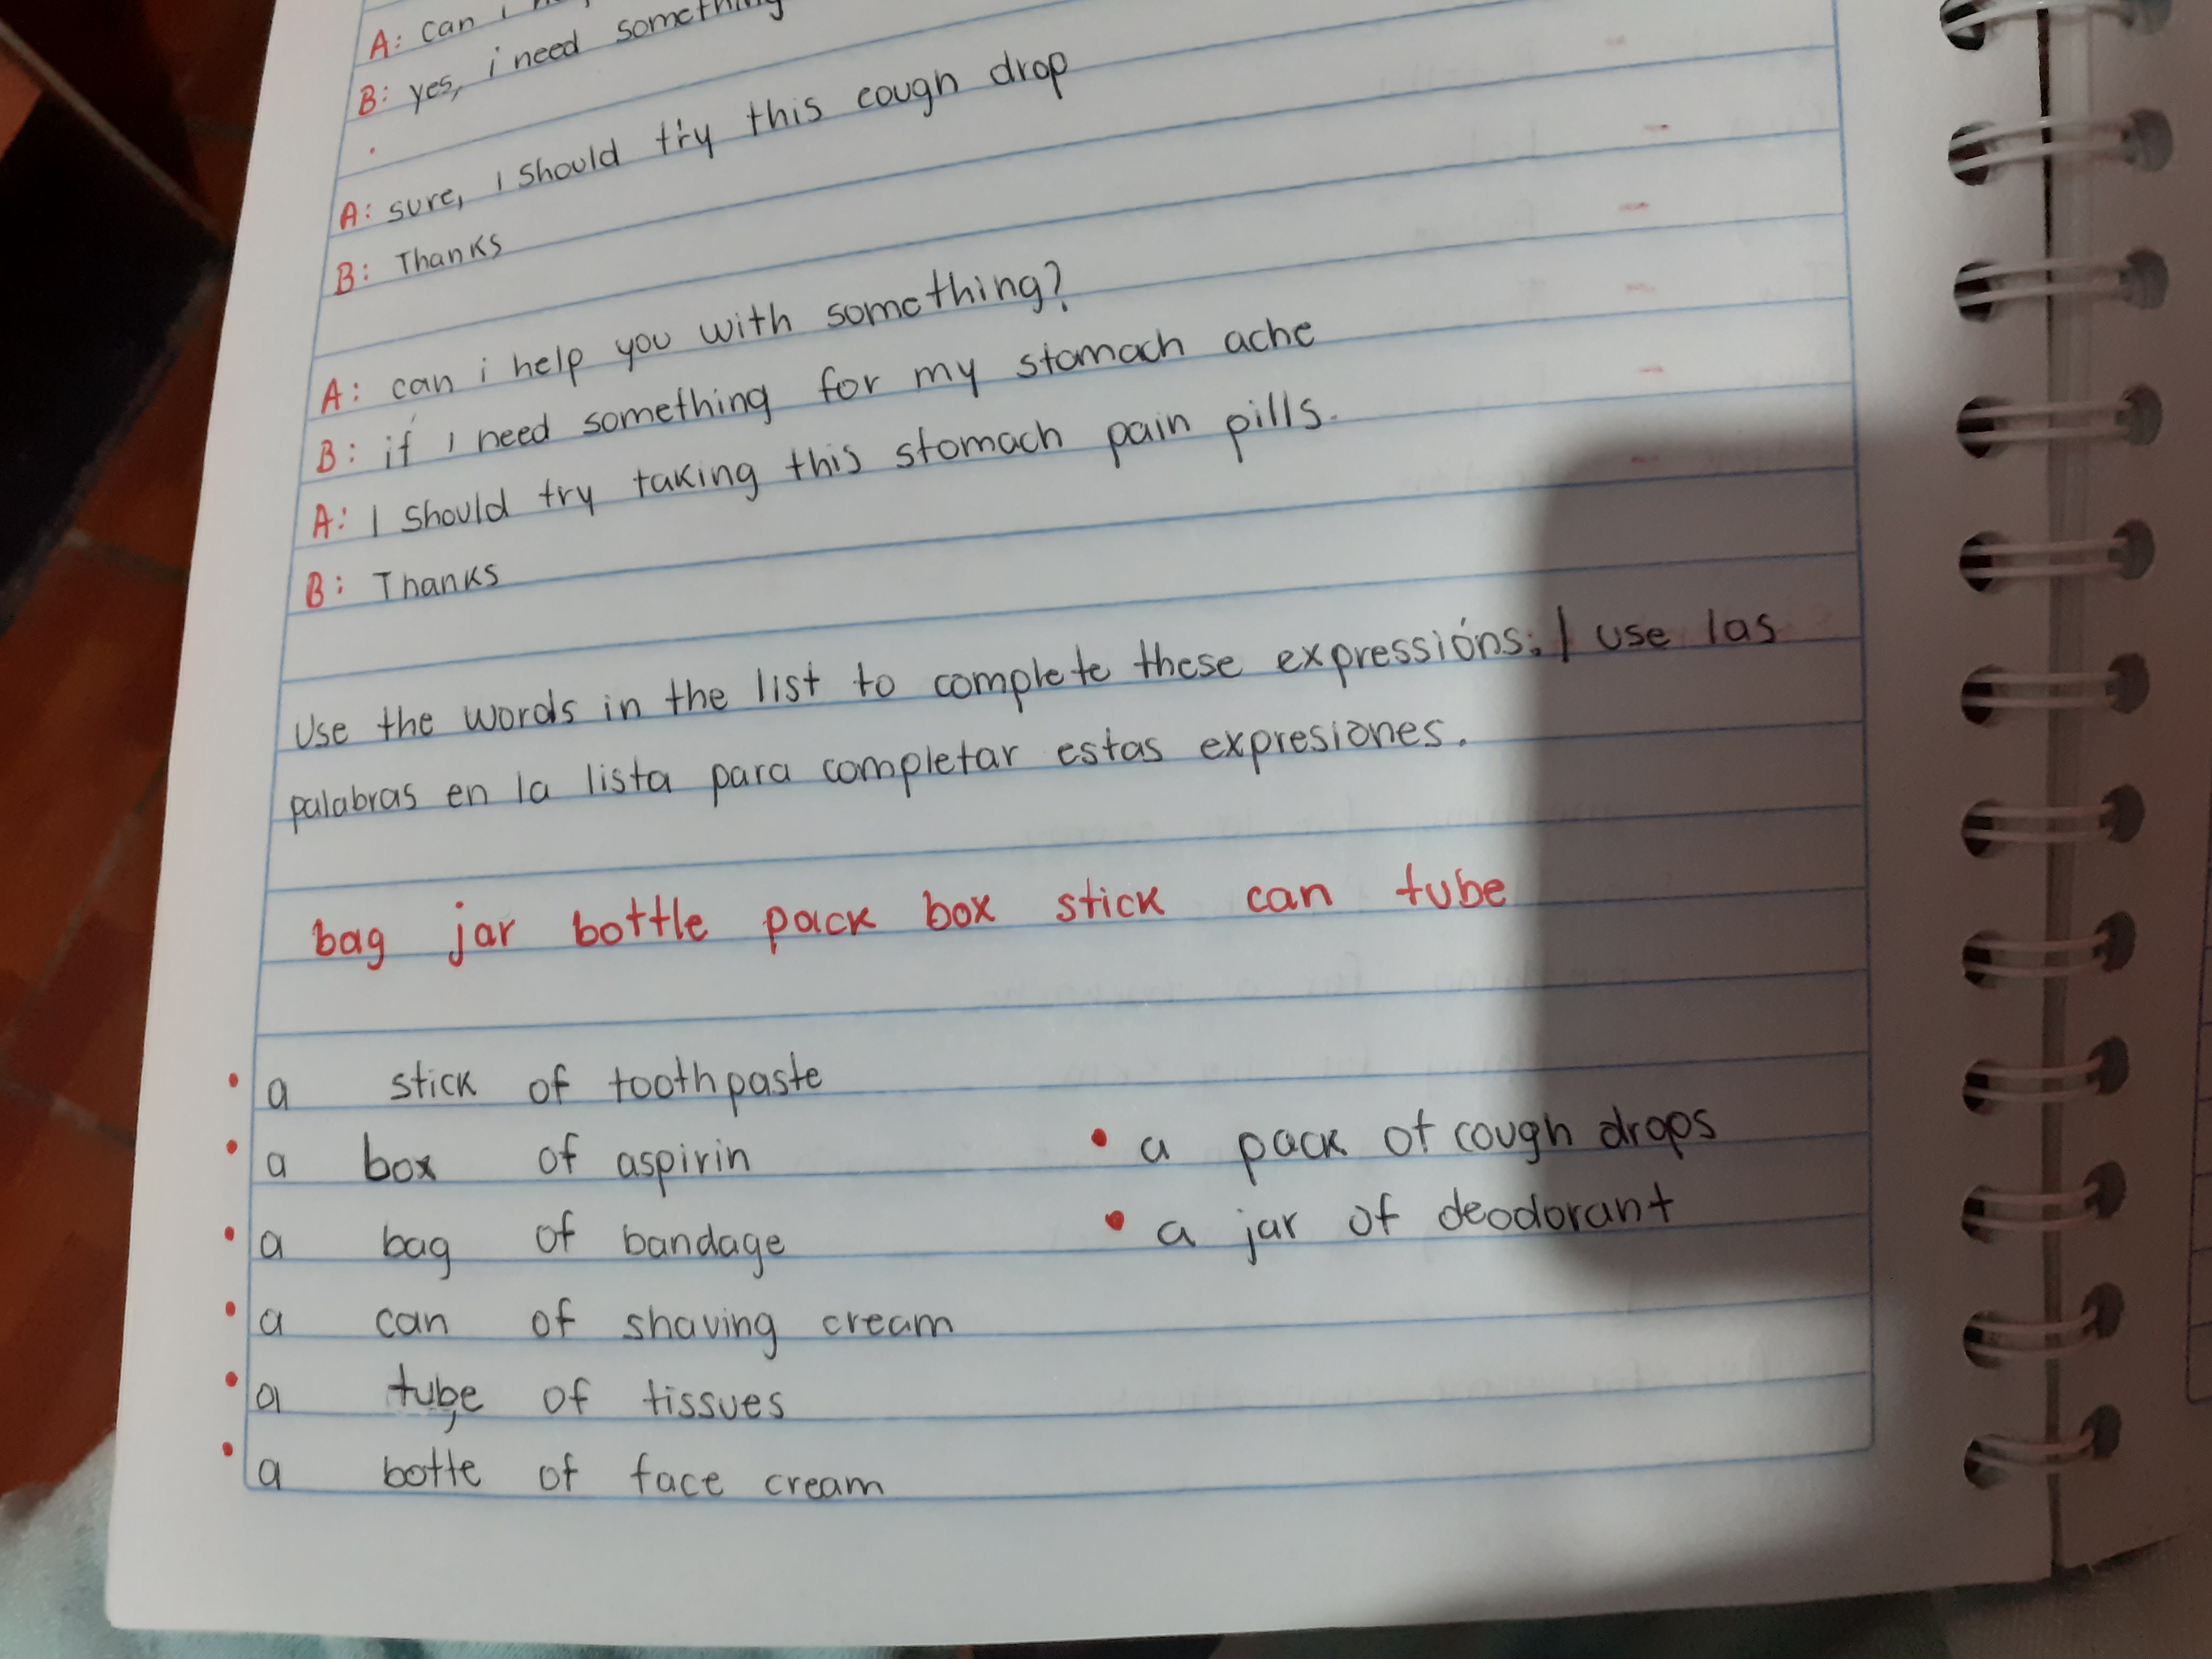 A: can i
B: yes, i need something
A: sure, I should try this cough drop
B: Thanks
A: can i help you with something?
B: if I need something for my stomach ache
A: I should try taking this stomach pain pills.
B: Thanks
Use the words in the list to complete these expressións: / use las
palabras en la lista para completar estas expresiones.
bag jar bottle pack box stick can tube
• a stick of toothpaste
• a box of aspirin
• a pack of cough drops
• a bag of bandage
• a jar of deodorant
• a can of shaving cream
• a tube of tissues
• a botte of face cream